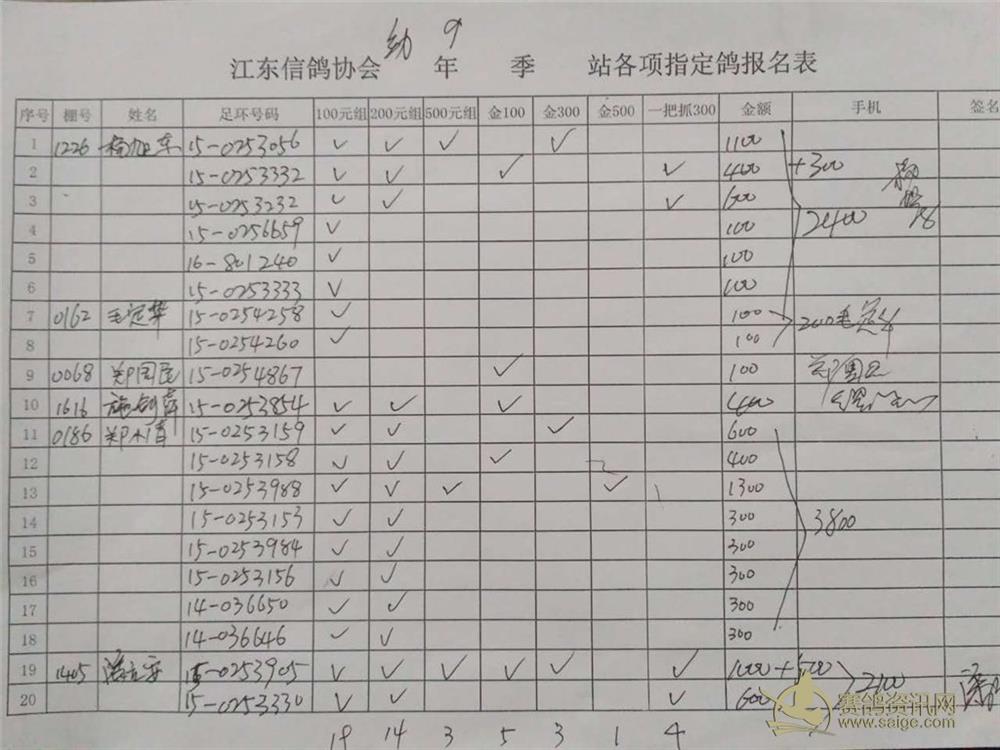 幼 9
江东信鸽协会 年 季 站各项指定鸽报名表
序号 棚号 姓名 足环号码 100元组 200元组 500元组 金100 金300 金500 一把抓300 金额 手机 签名
1 1226 15-0253056 ✓ ✓ ✓ ✓ 1100
2 15-0253332 ✓ ✓ ✓ ✓ 400 +300
3 15-0253232 ✓ ✓ ✓ 600
4 15-0256659 ✓ 100 2400
5 16-801240 ✓ 100
6 15-0253333 ✓ 100
7 0162 15-0254258 ✓ 100
8 15-0254260 ✓ 100 200毛
9 0068 郑国 15-0254867 ✓ 100 郑国
10 1616 施 15-0253854 ✓ ✓ ✓ 400
11 0186 郑 15-0253159 ✓ ✓ ✓ 600
12 15-0253158 ✓ ✓ ✓ 400
13 15-0253988 ✓ ✓ ✓ ✓ 1300
14 15-0253153 ✓ ✓ 300 3800
15 15-0253984 ✓ ✓ 300
16 15-0253156 ✓ ✓ 300
17 14-036650 ✓ ✓ 300
18 14-036646 ✓ ✓ 300
19 1405 15-0253905 ✓ ✓ ✓ ✓ ✓ ✓ 1000+500
20 15-0253330 ✓ ✓ ✓ 600 2100
19 14 3 5 3 1 4
赛鸽资讯网
www.saige.com